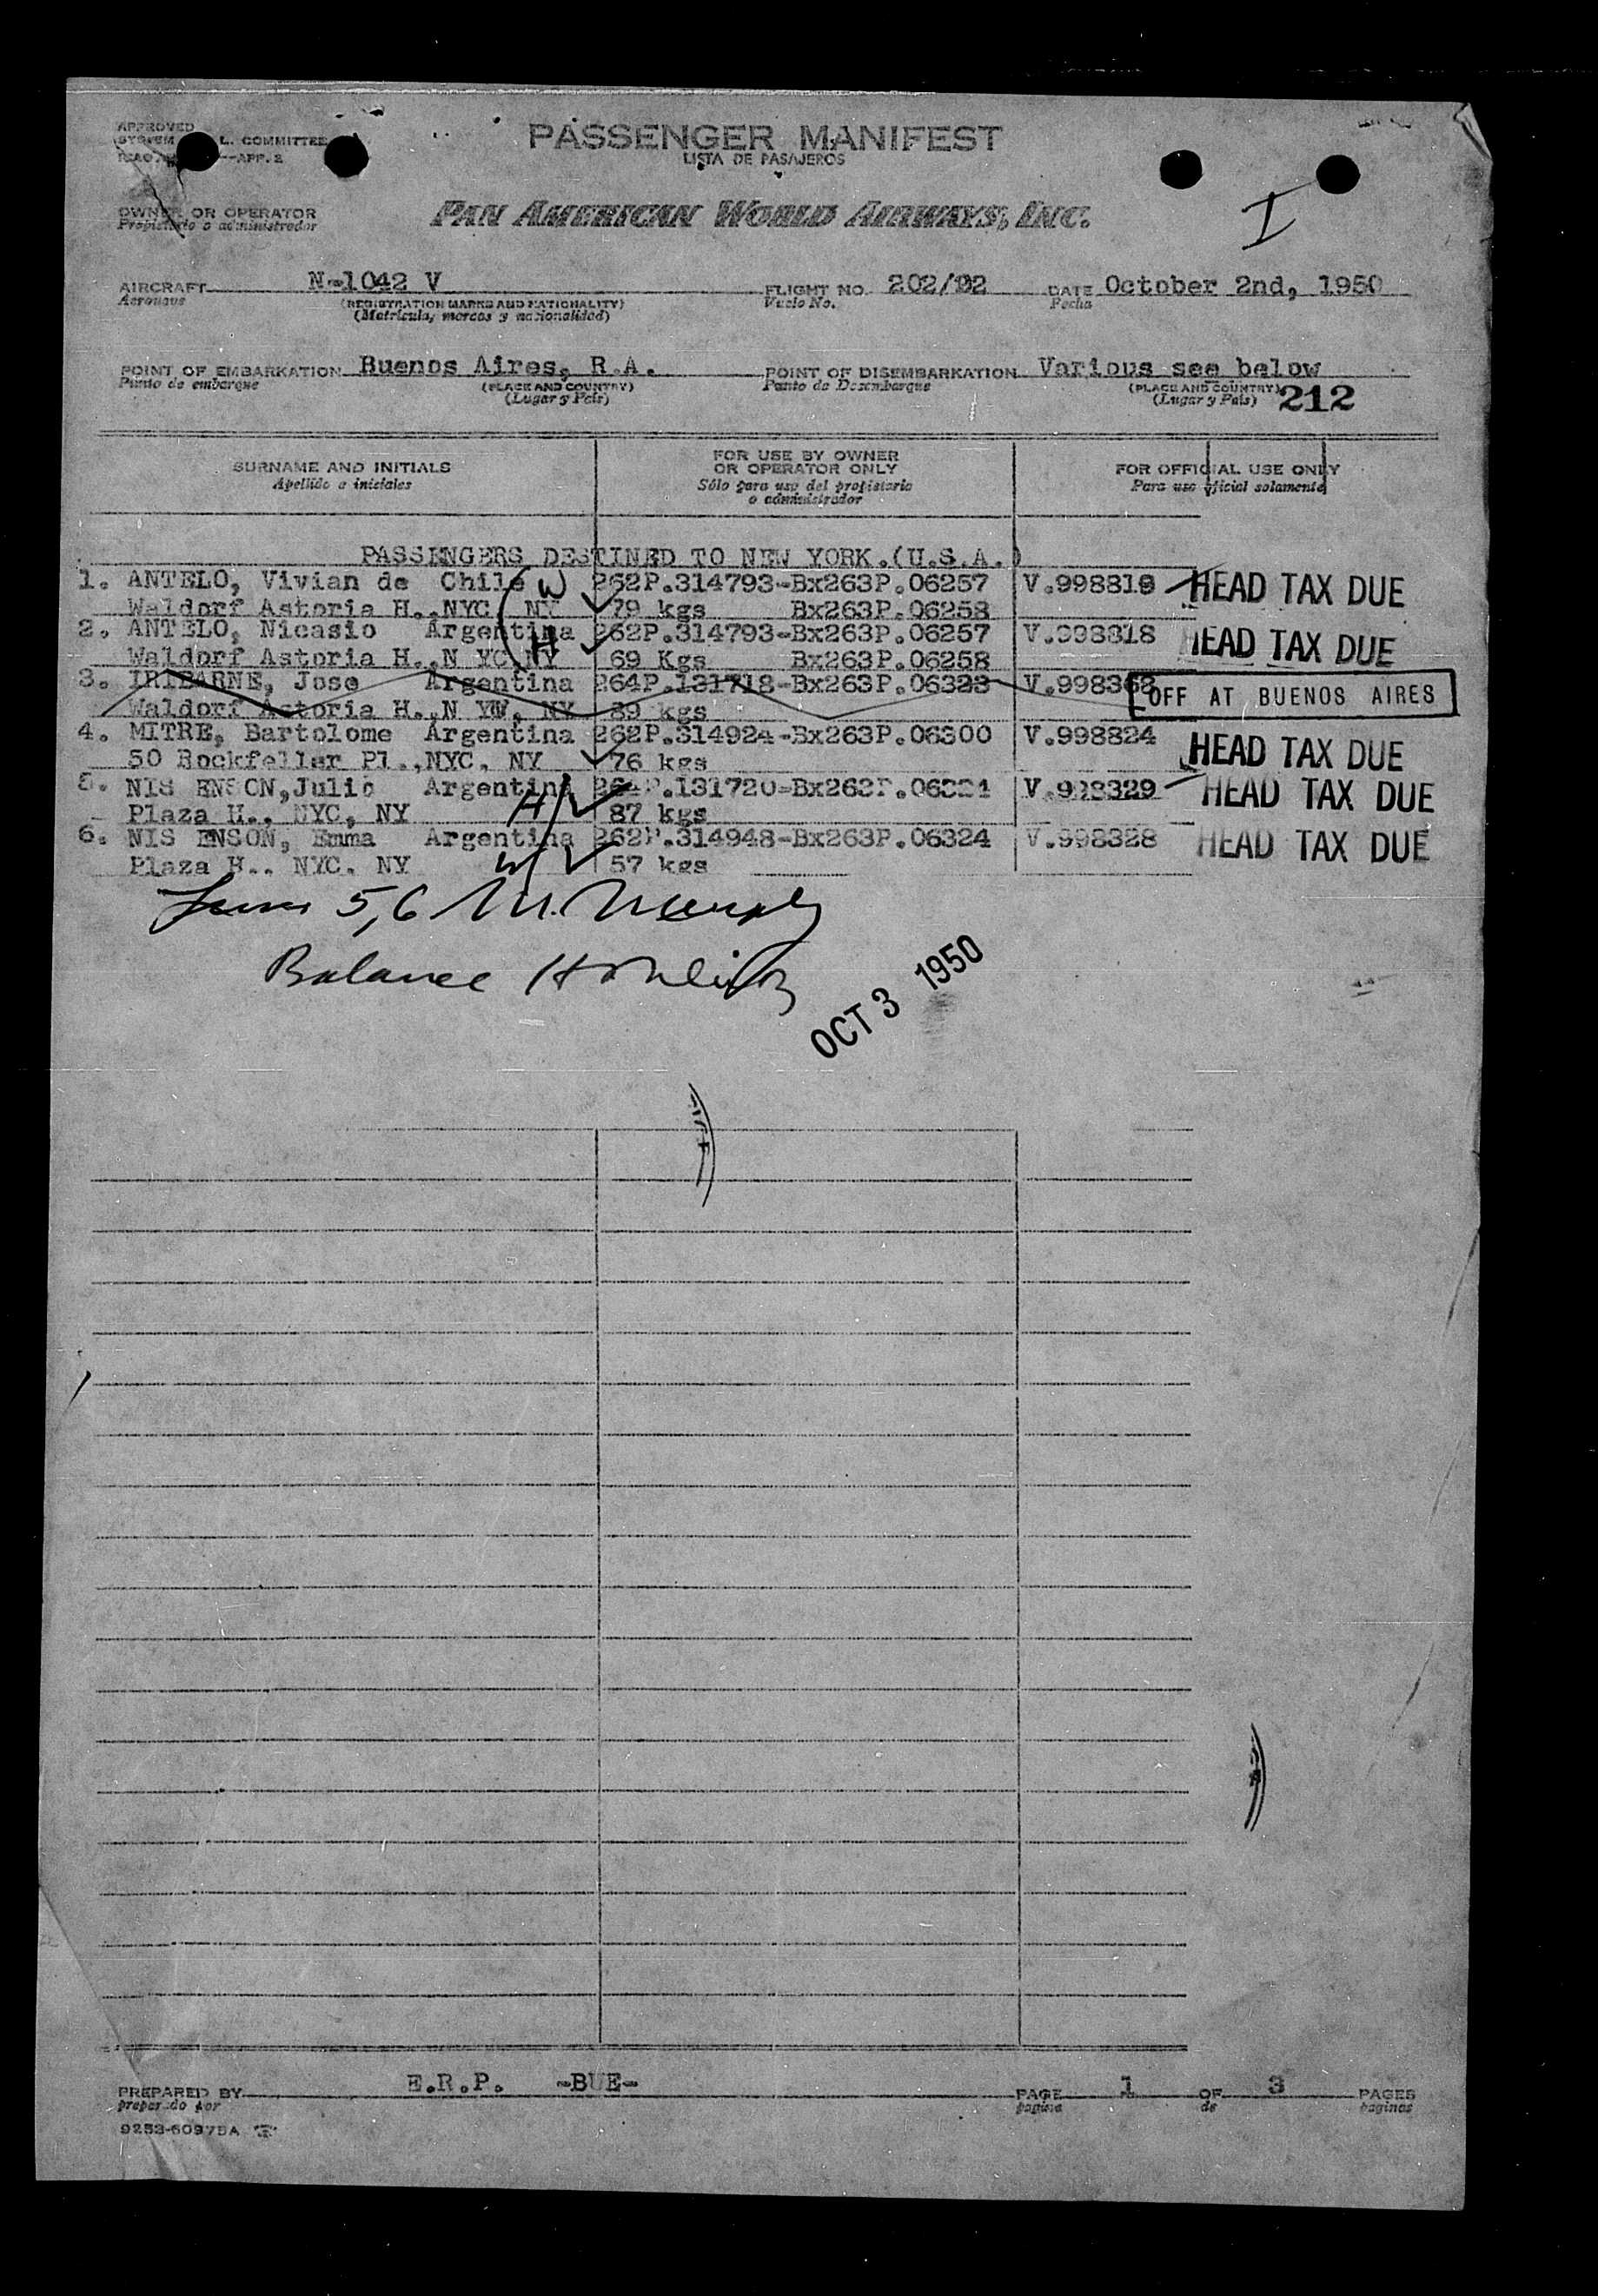 APPROVED
SYSTEM L. COMMITTEE
APP. 2
PASSENGER MANIFEST
LISTA DE PASAJEROS
I
OWNER OR OPERATOR
Propietario o administrador
PAN AMERICAN WORLD AIRWAYS, INC.
AIRCRAFT N-1042 V FLIGHT NO. 202/02 DATE October 2nd, 1950
Aeronave (REGISTRATION MARKS AND NATIONALITY) Vuelo No. Fecha
(Matrícula, marcas y nacionalidad)
POINT OF EMBARKATION Buenos Aires, R.A. POINT OF DISEMBARKATION Various see below
Punto de embarque (PLACE AND COUNTRY) Punto de Desembarque (PLACE AND COUNTRY)
(Lugar y País) (Lugar y País) 212
SURNAME AND INITIALS FOR USE BY OWNER OR OPERATOR ONLY FOR OFFICIAL USE ONLY
Apellido e iniciales Sólo para uso del propietario o administrador Para uso oficial solamente
PASSENGERS DESTINED TO NEW YORK.(U.S.A.)
1. ANTELO, Vivian de Chile W 262P.314793-Bx263P.06257 V.998819 HEAD TAX DUE
Waldorf Astoria H.,NYC, NY 79 kgs Bx263P.06258
2. ANTELO, Nicasio Argentina H 262P.314793-Bx263P.06257 V.998818 HEAD TAX DUE
Waldorf Astoria H.,N YC,NY 69 Kgs Bx263P.06258
3. IRIBARNE, Jose Argentina 264P.131718-Bx263P.06323 V.998368 OFF AT BUENOS AIRES
Waldorf Astoria H.,N YW, NY 89 kgs
4. MITRE, Bartolome Argentina 262P.314924-Bx263P.06300 V.998824 HEAD TAX DUE
50 Rockfeller Pl.,NYC, NY 76 kgs
5. NIS ENSON,Julio Argentina H 264P.131720-Bx263P. V.998329 HEAD TAX DUE
Plaza H., NYC, NY 87 kgs
6. NIS ENSON, Emma Argentina W 262P.314948-Bx263P.06324 V.998328 HEAD TAX DUE
Plaza H., NYC, NY 57 kgs
5,6 M. Murphy
Balance
OCT 3 1950
PREPARED BY E.R.P. -BUE- PAGE 1 OF 3 PAGES
preparado por pagina de paginas
9253-60975A